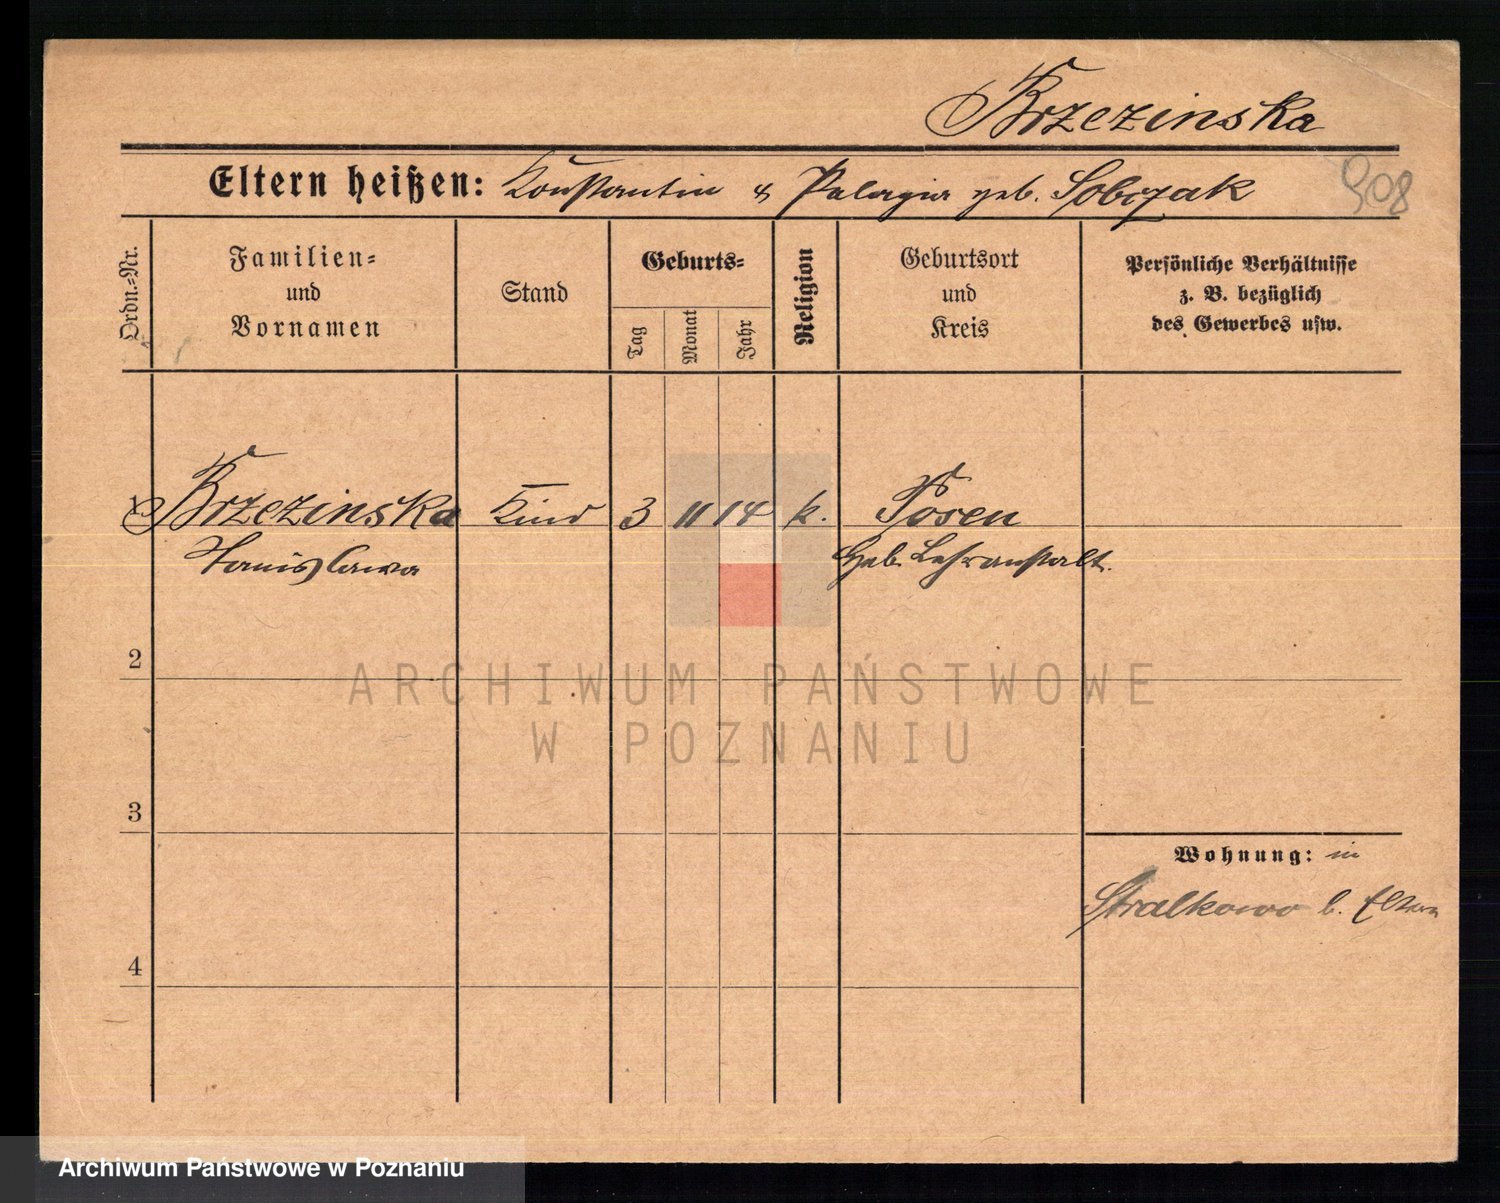 Brzezinska
Eltern heißen: Konstantin & Pelagia geb. Sobczak
908
Ordn.-Nr.
Familien-
und
Vornamen
Stand
Geburts-
Tag
Monat
Jahr
Religion
Geburtsort
und
Kreis
Persönliche Verhältnisse
z. B. bezüglich
des Gewerbes usw.
1 Brzezinska Kind 3 11 14 k. Posen
Stanislawa Heb. Lehranstalt.
2
3
4
Wohnung: in
Stralkowo b. Eltern
ARCHIWUM PAŃSTWOWE
W POZNANIU
Archiwum Państwowe w Poznaniu